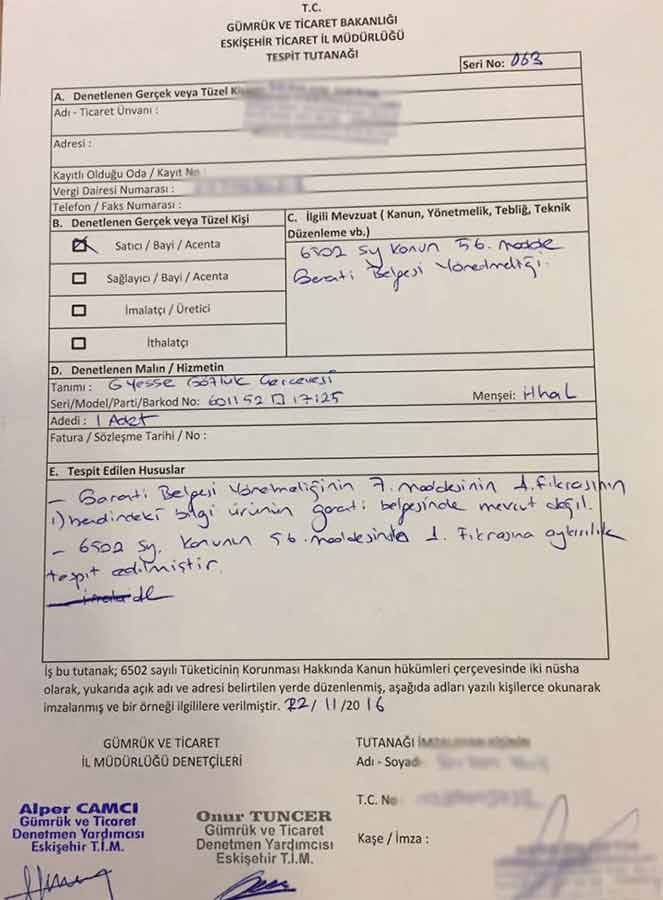 T.C.
GÜMRÜK VE TİCARET BAKANLIĞI
ESKİŞEHİR TİCARET İL MÜDÜRLÜĞÜ
TESPİT TUTANAĞI
Seri No: 063
A. Denetlenen Gerçek veya Tüzel Kişi
Adı - Ticaret Ünvanı :
Adresi :
Kayıtlı Olduğu Oda / Kayıt No
Vergi Dairesi Numarası :
Telefon / Faks Numarası :
B. Denetlenen Gerçek veya Tüzel Kişi
Satıcı / Bayi / Acenta
Sağlayıcı / Bayi / Acenta
İmalatçı / Üretici
İthalatçı
C. İlgili Mevzuat ( Kanun, Yönetmelik, Tebliğ, Teknik
Düzenleme vb.)
6502 sy Kanun 56. madde
Garanti Belgesi Yönetmeliği.
D. Denetlenen Malın / Hizmetin
Tanımı : Gyesse Gözlük Çerçevesi
Seri/Model/Parti/Barkod No: 601152 □ 17125
Menşei: İthal
Adedi : 1 Adet
Fatura / Sözleşme Tarihi / No :
E. Tespit Edilen Hususlar
- Garanti Belgesi Yönetmeliğinin 7. maddesinin 1. fıkrasının
ı) bendindeki bilgi ürünün garanti belgesinde mevcut değil.
- 6502 sy. Kanunun 56. maddesinde 1. Fıkrasına aykırılık
tespit edilmiştir.
İş bu tutanak; 6502 sayılı Tüketicinin Korunması Hakkında Kanun hükümleri çerçevesinde iki nüsha
olarak, yukarıda açık adı ve adresi belirtilen yerde düzenlenmiş, aşağıda adları yazılı kişilerce okunarak
imzalanmış ve bir örneği ilgililere verilmiştir. 22/11/2016
GÜMRÜK VE TİCARET
İL MÜDÜRLÜĞÜ DENETÇİLERİ
Alper CAMCI
Gümrük ve Ticaret
Denetmen Yardımcısı
Eskişehir T.İ.M.
Onur TUNCER
Gümrük ve Ticaret
Denetmen Yardımcısı
Eskişehir T.İ.M.
TUTANAĞI İMZALAYAN KİŞİNİN
Adı - Soyad
T.C. No
Kaşe / İmza :